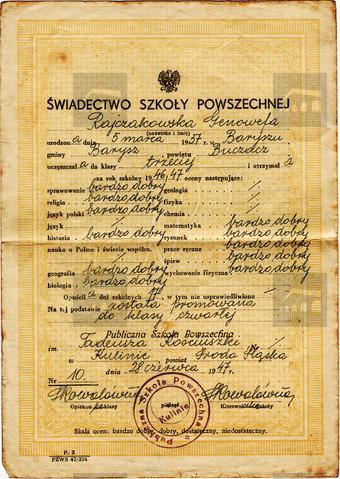 ŚWIADECTWO SZKOŁY POWSZECHNEJ
Rajczakowska Genowefa
(nazwisko i imię)
urodzona dnia 5 marca 1937 r. w Baryszu
gminy Barysz powiatu Buczacz
uczęszczała do klasy trzeciej i otrzymała
za rok szkolny 1946/47 oceny następujące:
sprawowanie bardzo dobry geologia /
religia bardzo dobry fizyka /
język polski bardzo dobry chemia /
język / matematyka bardzo dobry
historia bardzo dobry rysunek bardzo dobry
nauka o Polsce i świecie współczn. / prace ręczne bardzo dobry
śpiew bardzo dobry
geografia bardzo dobry wychowanie fizyczne bardzo dobry
biologia bardzo dobry
Opuściła dni szkolnych 17, w tym nie usprawiedliwiono /
Na tej podstawie została promowana
do klasy czwartej
Publiczna Szkoła Powszechna
im. Tadeusza Kościuszki Nr /
w Kulinie powiat Środa Śląska
dnia 28 czerwca 1947 r.
Nr 10
Opiekun klasy pieczęć Kierownik szkoły
Publiczna Szkoła Powszechna
Kulinie
Skala ocen: bardzo dobry, dobry, dostateczny, niedostateczny.
P. 3
PZWS 47/336